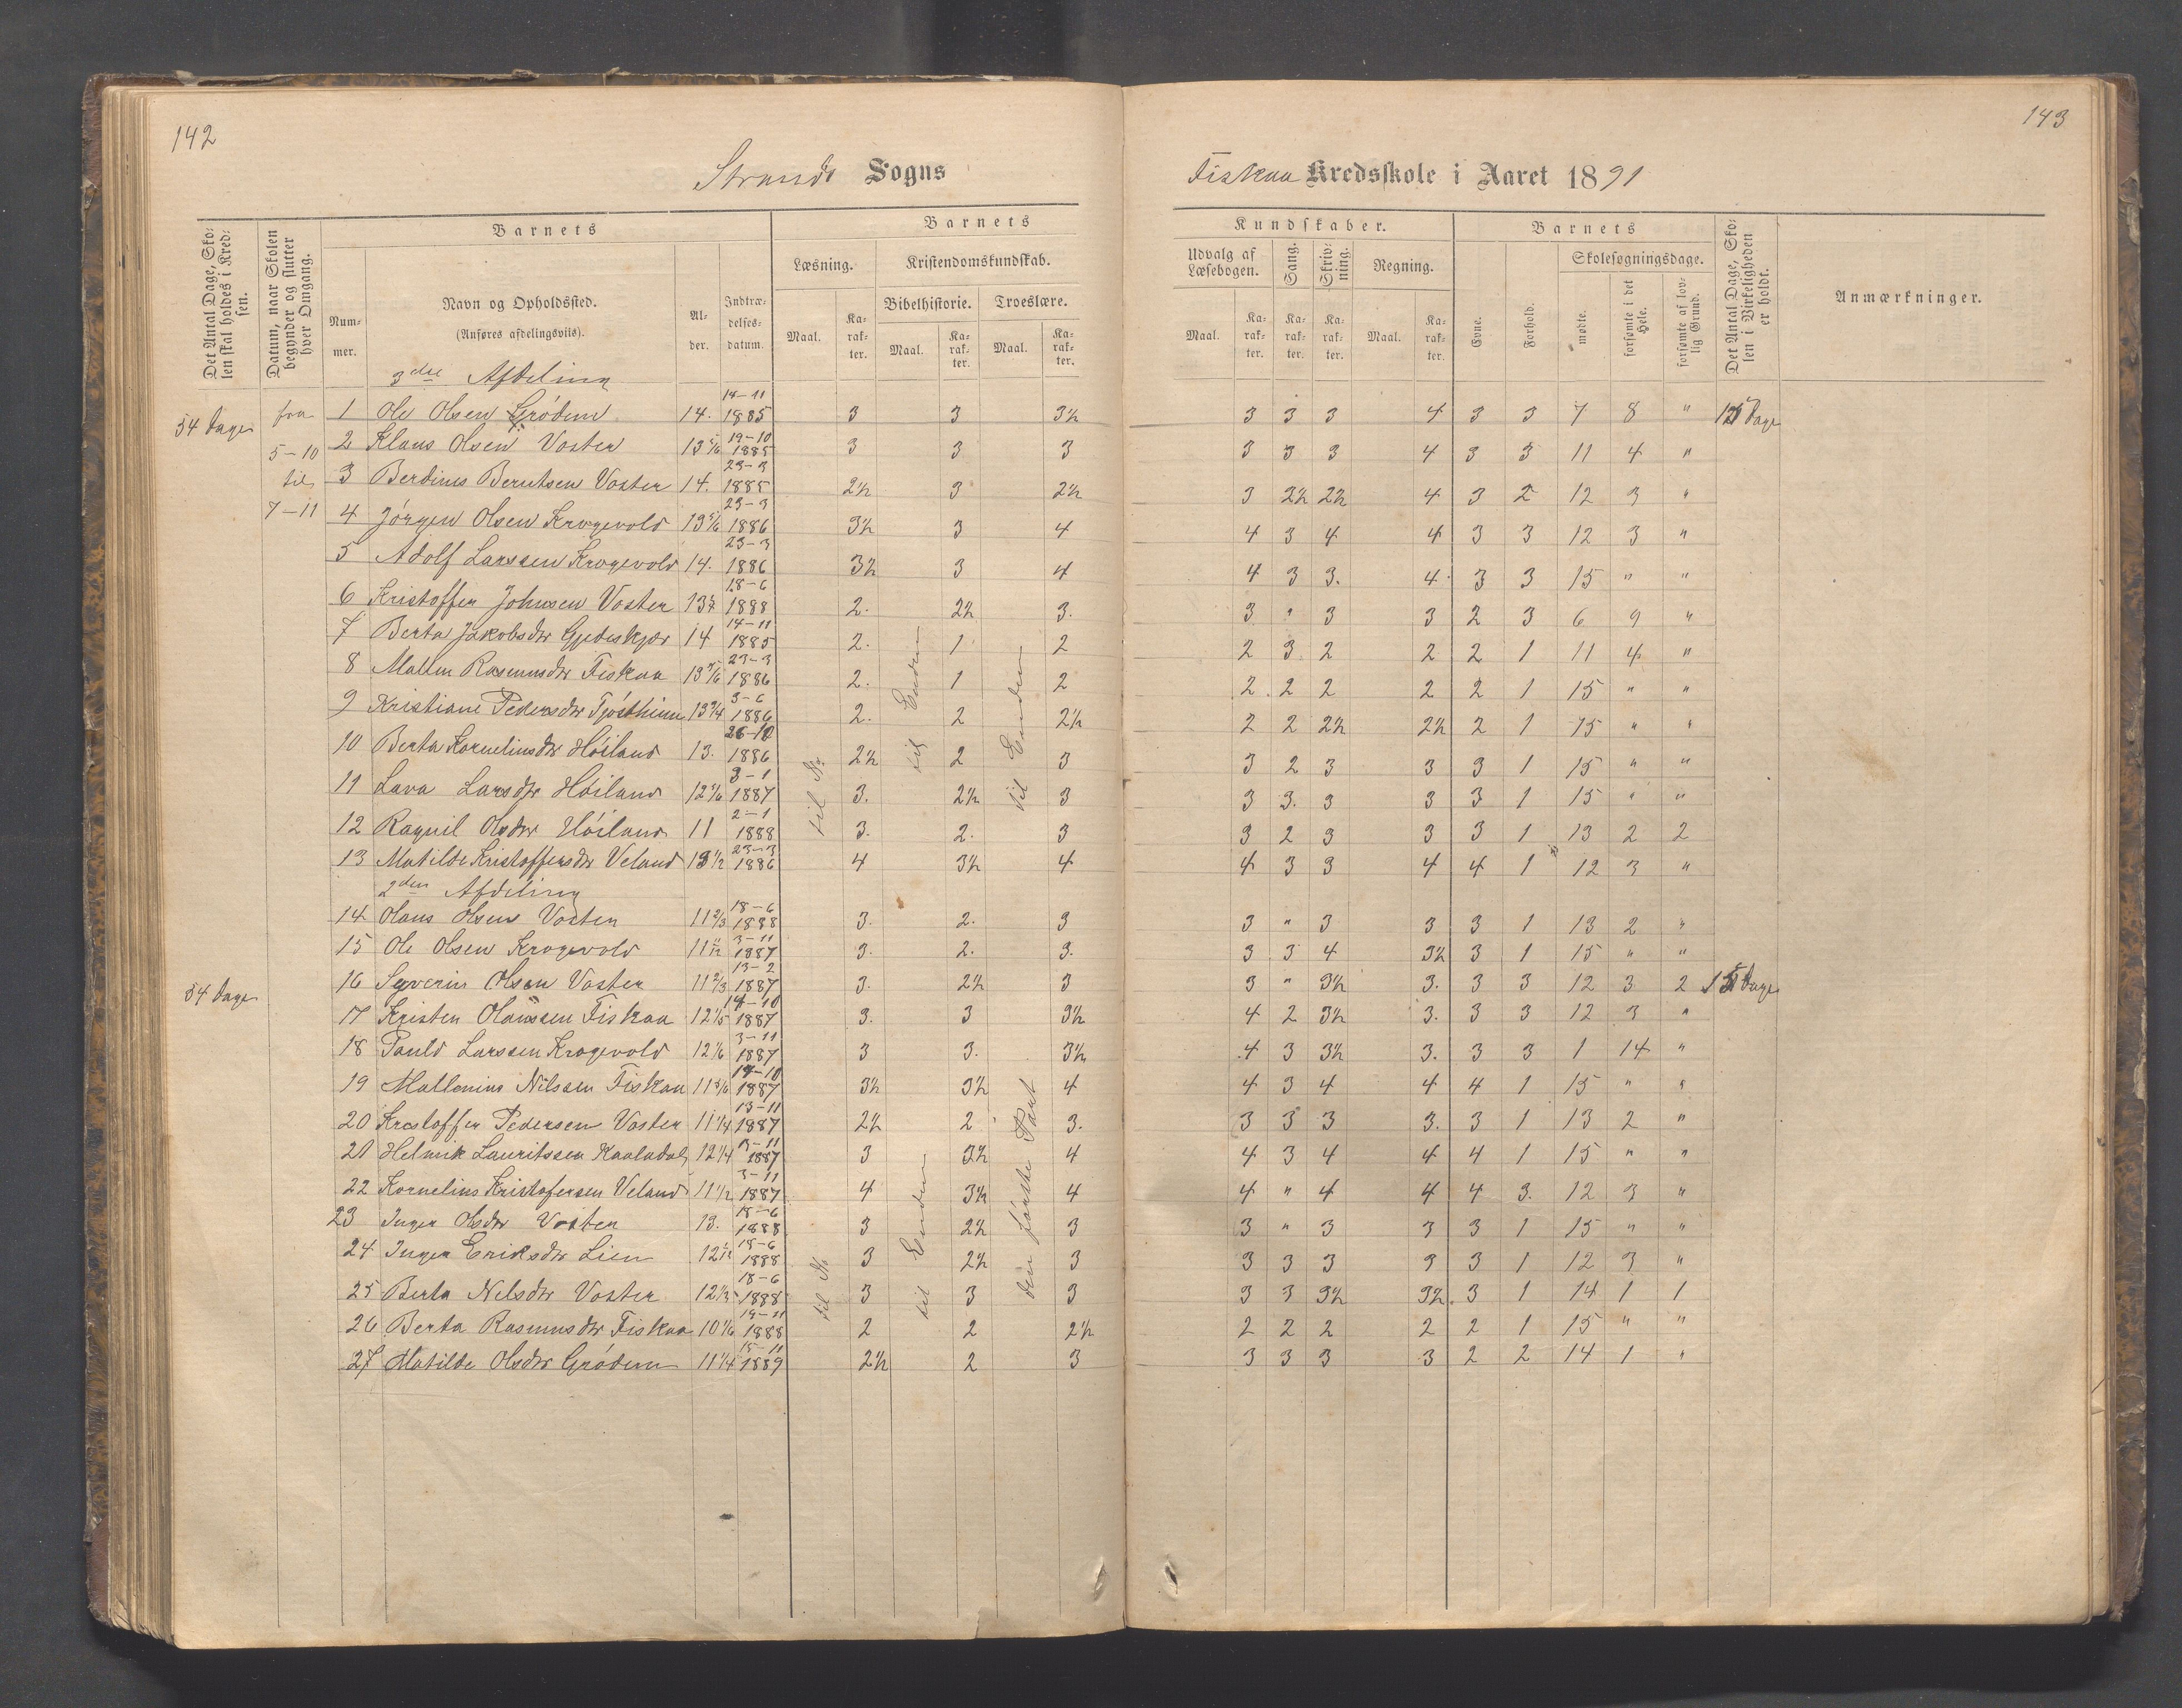 142
Strands Sogns
Det Antal Dage, Sko-
len skal holdes i Kred-
sen.
Datum, naar Skolen
begynder og slutter
hver Omgang.
Barnets
Num-
mer.
Navn og Opholdssted.
(Anføres afdelingsviis).
Al-
der.
Indtræ-
delses-
datum.
Barnets
Læsning.
Kristendomskundskab.
Bibelhistorie. Troeslære.
Maal. Ka-
rak-
ter. Maal. Ka-
rak-
ter. Maal. Ka-
rak-
ter.
3die Afdeling
54 Dage fra 5-10 til 7-11
1 Ole Olsen Grödem 14. 14-11 1885 3 3 3½
2 Klaus Olsen Voster 13 5/6 19-10 1885 3 3 3
3 Berdines Berntsen Voster 14. 23-3 1885 2½ 3 2½
4 Jörgen Olsen Krogevold 13 5/6 23-3 1886 3½ 3 4
5 Adolf Larssen Krogevold 14. 23-3 1886 3½ 3 4
6 Kristoffer Johnsen Voster 13½ 18-6 1888 2. 2½ 3.
7 Berta Jakobsdtr Gjedeskjær 14 14-11 1885 2. 1 2
8 Mallin Rasmusdtr Fiskaa 13 5/6 23-3 1886 2. 1 2
9 Kristiane Pedersdtr Tjöstheim 13 3/4 3-6 1886 2. 2 2½
10 Berta Korneliusdtr Höiland 13. 26-10 1886 2½ 2 3
11 Lava Larsdtr Höiland 12 5/6 3-1 1887 3. 2½ 3
12 Ragnil Olsdtr Höiland 11 2-1 1888 3. 2. 3
13 Matilde Kristoffersdtr Veland 13½ 23-3 1886 4 3½ 4
til Enden
til Enden
2den Afdeling
14 Olaus Olsen Voster 11 2/3 18-6 1888 3. 2. 3
15 Ole Olsen Krogevold 11 3-11 1887 3. 2. 3.
54 Dage
16 Syverin Olsen Voster 11 2/3 13-2 1887 3. 2½ 3
17 Kristen Olaussen Fiskaa 12 1/5 14-10 1887 3. 3 3½
18 Pauld Larssen Krogevold 12 1/6 3-11 1887 3 3. 3½
19 Mallenius Nilssen Fiskaa 11 5/6 14-10 1887 3½ 3½ 4
20 Krestoffer Pedersen Voster 11 1/4 13-11 1887 2½ 2 3.
21 Helmik Lauritssen Kaaladal 12 1/4 3-11 1887 3 3½ 4
22 Kornelius Kristofersen Veland 11 1/2 3-11 1887 4 3½ 4
23 Inger Olsdtr Voster 13. 18-6 1888 3 2½ 3
24 Inger Eriksdtr Lien 12 18-6 1888 3 2½ 3
25 Berta Nelsdtr Voster 12 1/3 18-6 1888 3 3 3
26 Berta Rasmusdtr Fiskaa 10 1/6 19-11 1888 2 2 2½
27 Matilde Olsdtr Grödem 11 1/4 15-11 1889 2½ 2 3
til Enden
den förste Part
143
Fiskaa Kredsskole i Aaret 1891
Kundskaber.
Udvalg af
Læsebogen.
Sang.
Skriv-
ning.
Regning.
Maal. Ka-
rak-
ter. Ka-
rak-
ter. Ka-
rak-
ter. Maal. Ka-
rak-
ter.
Barnets
Evne.
Forhold.
Skolesøgningsdage.
mødte.
forsømte i det
Hele.
forsømte af lov-
lig Grund.
Det Antal Dage, Sko-
len i Virkeligheden
er holdt.
Anmærkninger.
3 3 3 4 3 3 7 8 " 15 Dage
3 3 3 4 3 3 11 4 "
3 2½ 2½ 4 3 2 12 3 "
4 3 4 4 3 3 12 3 "
4 3 3. 4. 3 3 15 " "
3 " 3 3 2 3 6 9 "
2 3 2 2 2 1 11 4 "
2. 2 2 2 2 1 15 " "
2 2 2½ 2½ 2 1 15 " "
3 2 3 3 3 1 15 " "
3 3. 3 3 3 1 15 " "
3 2 3 3 3 1 13 2 2
4 3 3 4 4 1 12 3 "
3 " 3 3 3 1 13 2 "
3 3 4 3½ 3 1 15 " "
3 " 3½ 3. 3 3 12 3 2 15 Dage
4 2 3½ 3. 3 3 12 3 "
4 3 3½ 3. 3 3 1 14 "
4 3 4 4 4 1 15 " "
3 3 3 3. 3 1 13 2 "
4 3 4 4 4 1 15 " "
4 " 4 4 4 3. 12 3 "
3 " 3 3 3 1 15 " "
3 3 3 3 3 1 12 3 "
3 3 3½ 3½. 3 1 14 1 1
2 2 2 2 2 1 15 " "
3 3 3 3 2 2 14 1 "